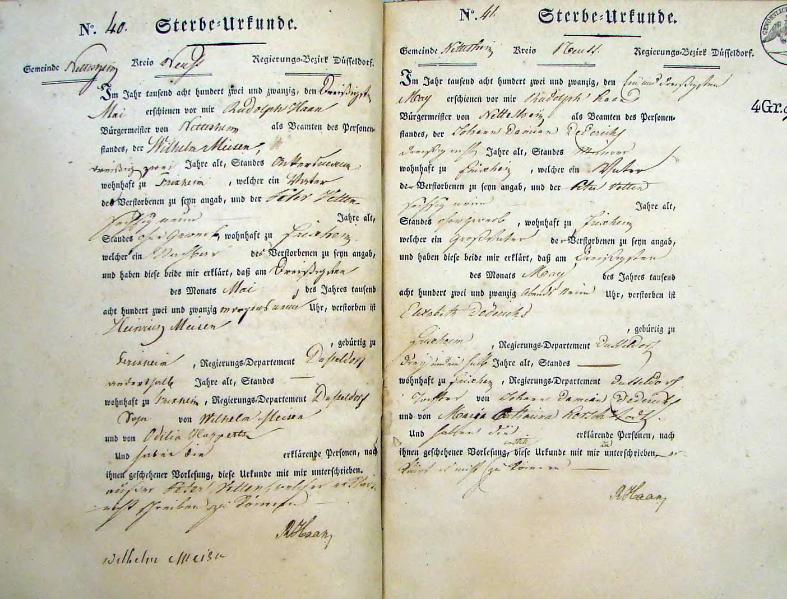 No. 40. Sterbe-Urkunde.
Gemeinde Nettesheim Kreis Neuß Regierungs-Bezirk Düsseldorf.
Im Jahr tausend acht hundert zwei und zwanzig, den Dreißigsten
Mai erschienen vor mir Rudolph Haan
Bürgermeister von Nettesheim als Beamten des Personen-
standes, der Wilhelm Meisen,
Jahre alt, Standes Ackersmann
wohnhaft zu Frixheim, welcher ein Vater
des Verstorbenen zu seyn angab, und der Peter Velten
Jahre alt,
Standes wohnhaft zu Frixheim
welcher ein des Verstorbenen zu seyn angab,
und haben diese beide mir erklärt, daß am Dreißigsten
des Monats Mai, des Jahres tausend
acht hundert zwei und zwanzig morgens neun Uhr, verstorben ist
Heinrich Meisen
, gebürtig zu
Frixheim, Regierungs-Departement Düsseldorf
anderthalb Jahre alt, Standes —
wohnhaft zu Frixheim, Regierungs-Departement Düsseldorf
Sohn von Wilhelm Meisen
und von Odilia
Und haben die erklärende Personen, nach
ihnen geschehener Vorlesung, diese Urkunde mit mir unterschrieben.
außer Peter Velten, welcher
nicht schreiben zu können
RHaan
Wilhelm Meisen
No. 41. Sterbe-Urkunde.
Gemeinde Nettesheim Kreis Neuß Regierungs-Bezirk Düsseldorf.
Im Jahr tausend acht hundert zwei und zwanzig, den ein und dreißigsten
May erschienen vor mir Rudolph Haan
Bürgermeister von Nettesheim als Beamten des Personen-
standes, der Johann Damian Dederichs
Jahre alt, Standes
wohnhaft zu Frixheim, welcher ein Vater
der Verstorbenen zu seyn angab, und der Peter Velten
Jahre alt,
Standes, wohnhaft zu Frixheim
welcher ein Großvater der Verstorbenen zu seyn angab,
und haben diese beide mir erklärt, daß am Dreißigsten
des Monats May des Jahres tausend
acht hundert zwei und zwanzig Abends neun Uhr, verstorben ist
Elisabeth Dederichs
, gebürtig zu
Frixheim, Regierungs-Departement Düsseldorf
Jahre alt, Standes —
wohnhaft zu Frixheim, Regierungs-Departement Düsseldorf
Tochter von Johann Damian Dederichs
und von Maria Catharina
Und haben die erklärende Personen, nach
ihnen geschehener Vorlesung, diese Urkunde mit mir unterschrieben.
nicht zu können
RHaan
4Gr.